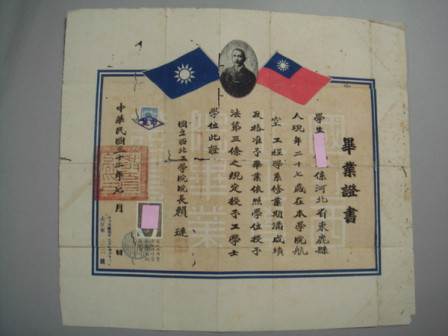 畢業證書
學生 係河北省束鹿縣
人現年二十七歲在本學院航
空工程學系修業期滿成績
及格准予畢業依照學位授予
法第三條之規定授予工學士
學位此證
國立西北工學院院長賴璉
中華民國三十二年 月 日